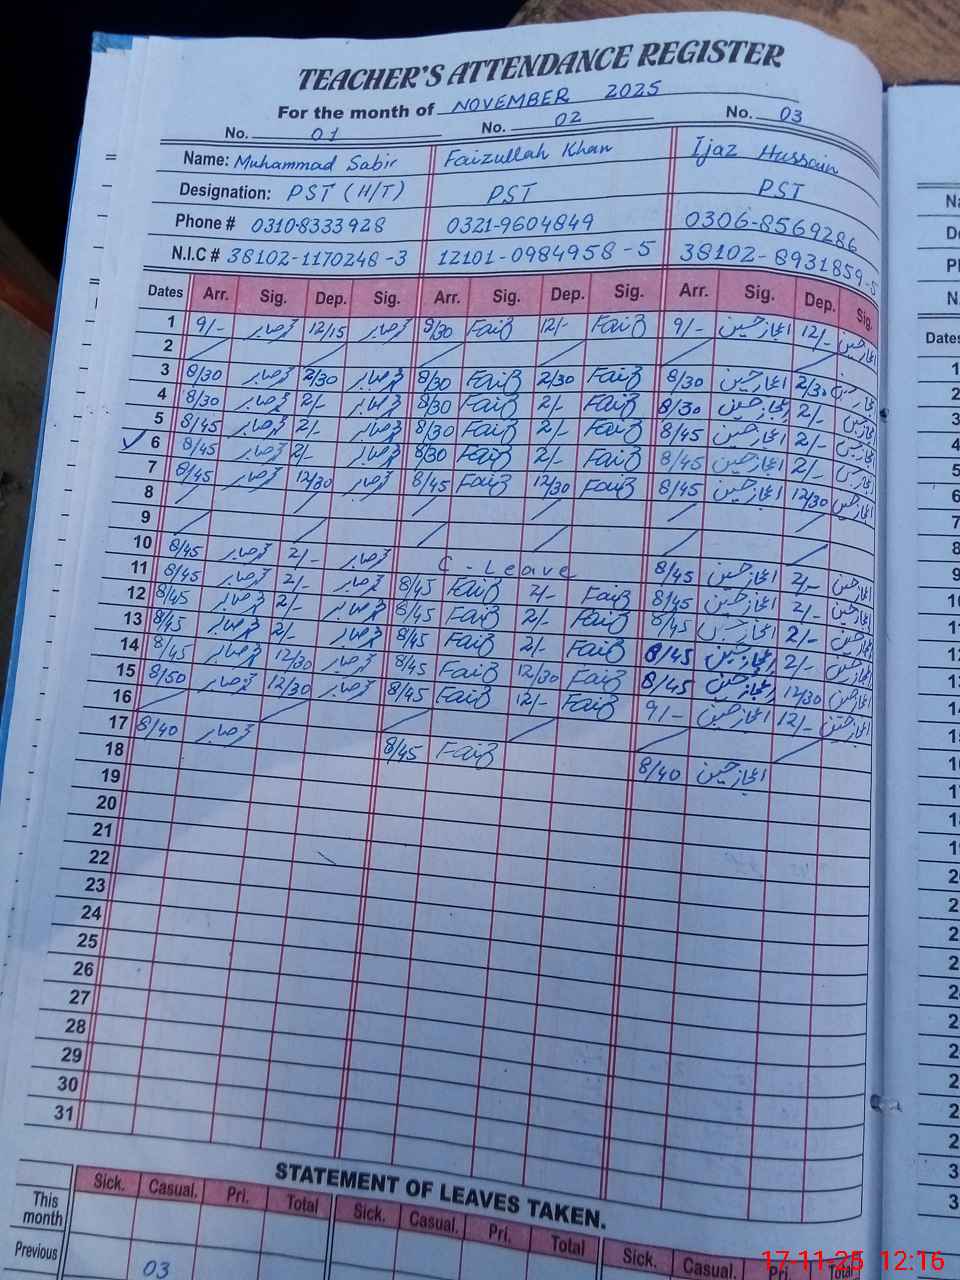 TEACHER'S ATTENDANCE REGISTER
For the month of NOVEMBER 2025
No. 01 No. 02 No. 03
Name: Muhammad Sabir Faizullah Khan Ijaz Hussain
Designation: PST (H/T) PST PST
Phone # 0310-8333928 0321-9604849 0306-8569286
N.I.C # 38102-1170248-3 12101-0984958-5 38102-8931859-5
Dates Arr. Sig. Dep. Sig. Arr. Sig. Dep. Sig. Arr. Sig. Dep. Sig.
1 9/- صابر 12/15 صابر 8/30 Faiz 12/- Faiz 9/- اعجاز حسین 12/- اعجاز حسین
2
3 8/30 صابر 2/30 صابر 8/30 Faiz 2/30 Faiz 8/30 اعجاز حسین 2/30 اعجاز حسین
4 8/30 صابر 2/- صابر 8/30 Faiz 2/- Faiz 8/30 اعجاز حسین 2/- اعجاز حسین
5 8/45 صابر 2/- صابر 8/30 Faiz 2/- Faiz 8/45 اعجاز حسین 2/- اعجاز حسین
6 8/45 صابر 2/- صابر 8/30 Faiz 2/- Faiz 8/45 اعجاز حسین 2/- اعجاز حسین
7 8/45 صابر 12/30 صابر 8/45 Faiz 12/30 Faiz 8/45 اعجاز حسین 12/30 اعجاز حسین
8
9
10 8/45 صابر 2/- صابر C-Leave 8/45 اعجاز حسین 2/- اعجاز حسین
11 8/45 صابر 2/- صابر 8/45 Faiz 2/- Faiz 8/45 اعجاز حسین 2/- اعجاز حسین
12 8/45 صابر 2/- صابر 8/45 Faiz 2/- Faiz 8/45 اعجاز حسین 2/- اعجاز حسین
13 8/45 صابر 2/- صابر 8/45 Faiz 2/- Faiz 8/45 اعجاز حسین 2/- اعجاز حسین
14 8/45 صابر 12/30 صابر 8/45 Faiz 12/30 Faiz 8/45 اعجاز حسین 12/30 اعجاز حسین
15 8/50 صابر 12/30 صابر 8/45 Faiz 12/- Faiz 9/- اعجاز حسین 12/- اعجاز حسین
16
17 8/40 صابر 8/45 Faiz 8/40 اعجاز حسین
18
19
20
21
22
23
24
25
26
27
28
29
30
31
STATEMENT OF LEAVES TAKEN.
Sick. Casual. Pri. Total Sick. Casual. Pri. Total Sick. Casual. Pri. Total
This month
Previous 03
17-11-25 12:16